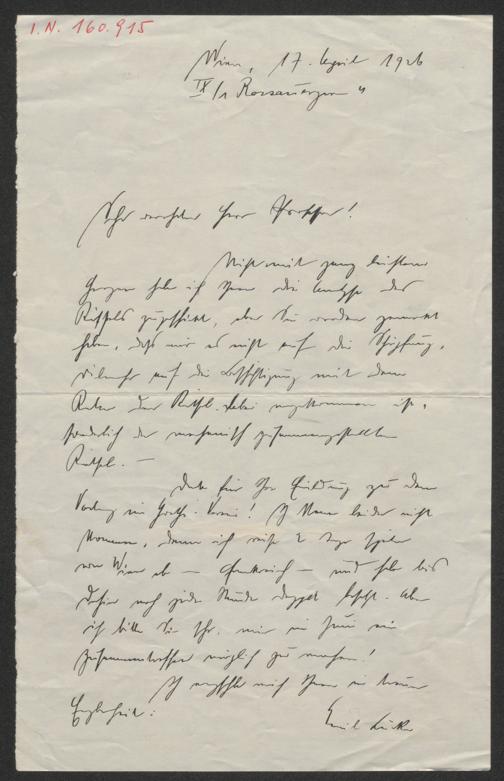 I.N. 160.915
Wien, 17. April 1926
IX/1 Rossauergasse 4
Sehr verehrter Herr Professor!
Nicht mit ganz leichtem
Herzen habe ich Ihnen die Analyse des
Rätsels zugeschickt, aber Sie werden gemerkt
haben, daß mir es nicht auf die Schöpfung,
vielmehr auf die Beschäftigung mit dem
Raten der Rätsel dabei angekommen ist,
sonderlich der zusammengestellten
Rätsel. —
Danke für Ihre Einladung zu dem
Vortrag im Goethe-Verein! Ich kann leider nicht
kommen, denn ich reise 2 Tage später
von Wien ab — Frankreich — und habe bis
dahin noch jede Stunde doppelt besetzt. Aber
ich bitte Sie sehr, mir im Juni ein
Zusammentreffen möglich zu machen!
Ich empfehle mich Ihnen in treuer
Ergebenheit:
Emil Lucka